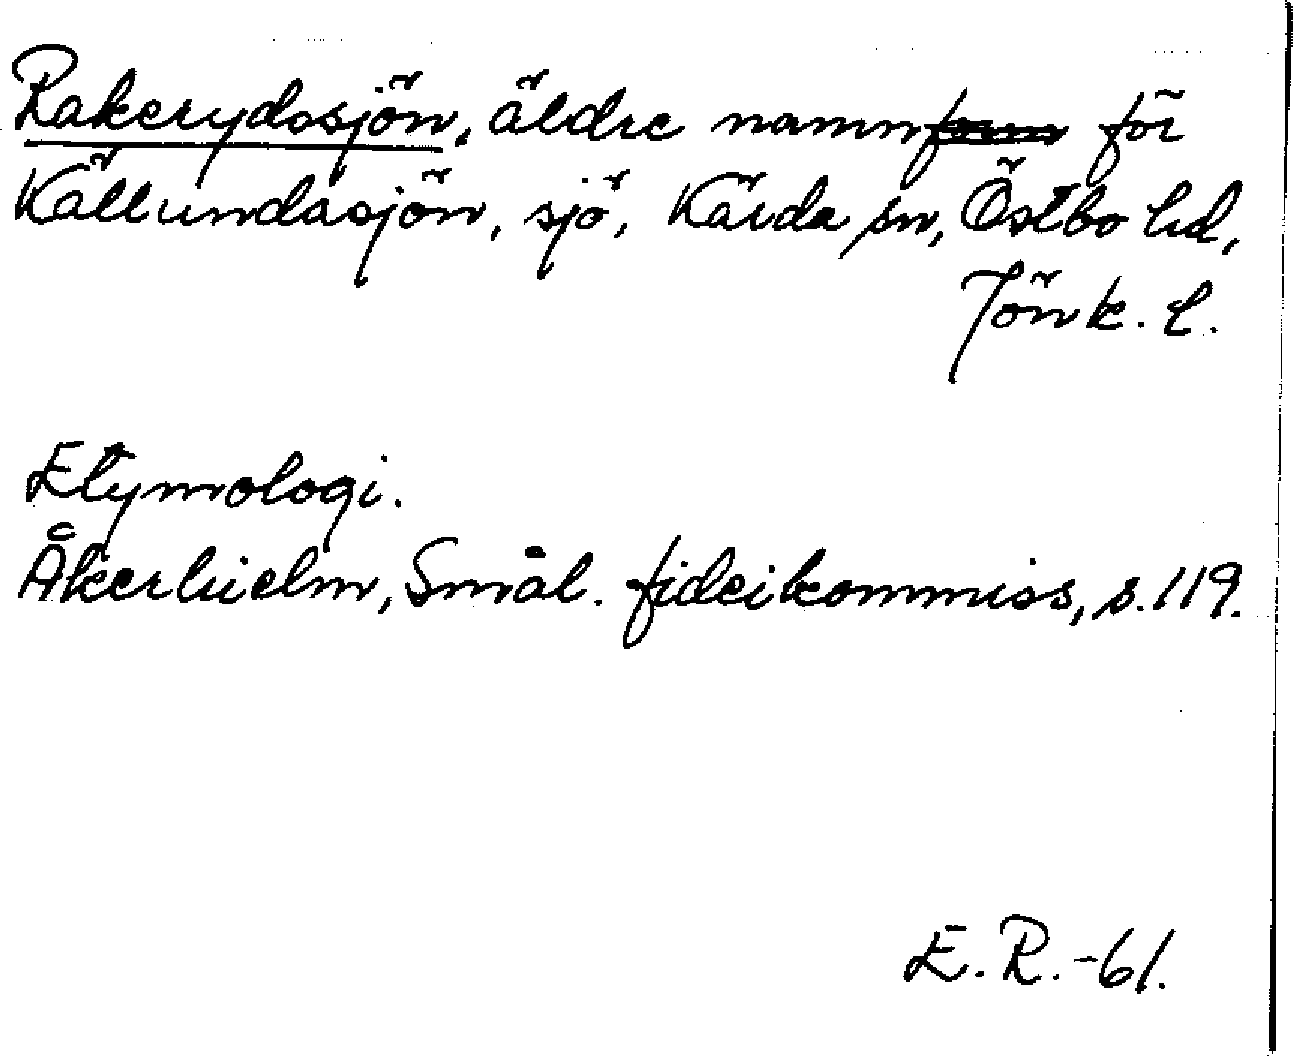 Rakerydssjön, äldre namn för
Källundasjön, sjö, Kärda sn, Östbo hd,
Jönk. l.
Etymologi.
Åkerhielm, Smål. fideikommiss, s. 119.
E. R. -61.